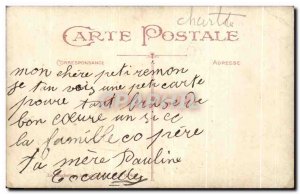 chartre
CARTE POSTALE
CORRESPONDANCE
ADRESSE
mon chère petit remon
je tan vois une peti carte
pouve tant brase de
bon cœure un si cc
la famille co père
ta mère Pauline